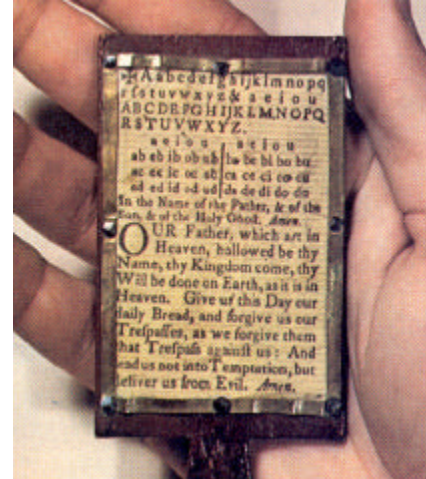 ✠Aabcdefghijklmnopq
rſstuvwxyz& a e i o u
ABCDEFGHIJKLMNOPQ
RSTUVWXYZ.
a e i o u | a e i o u
ab eb ib ob ub | ba be bi bo bu
ac ec ic oc uc | ca ce ci co cu
ad ed id od ud | da de di do du
In the Name of the Father, & of the
Son, & of the Holy Ghoſt. Amen.
OUR Father, which art in
Heaven, hallowed be thy
Name, thy Kingdom come, thy
Will be done on Earth, as it is in
Heaven. Give us this Day our
daily Bread, and forgive us our
Treſpaſſes, as we forgive them
that Treſpaſs againſt us: And
lead us not into Temptation, but
deliver us from Evil. Amen.